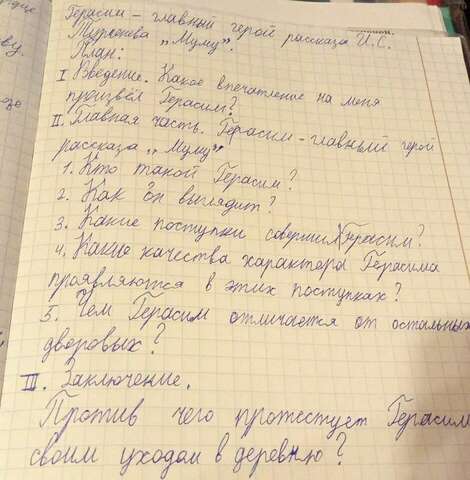 Герасим - главный герой рассказа И.С.
Тургенева „Муму".
План:
I Введение. Какое впечатление на меня
произвёл Герасим?
II. Главная часть. Герасим - главный герой
рассказа „Муму"
1. Кто такой Герасим?
2. Как он выглядит?
3. Какие поступки совершил Герасим?
4. Какие качества характера Герасима
проявляются в этих поступках?
5. Чем Герасим отличается от остальных
дворовых?
III. Заключение.
Против чего протестует Герасим
своим уходом в деревню?